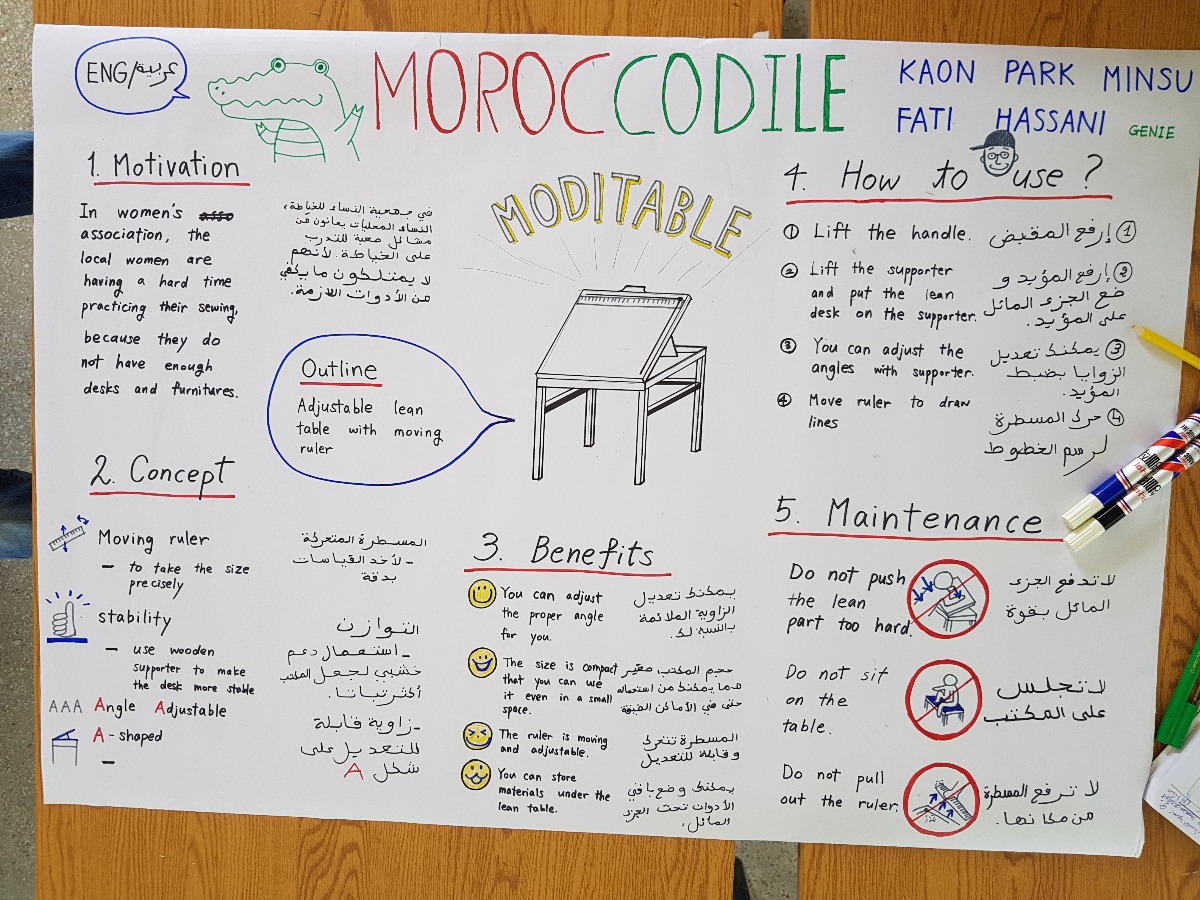 ENG/عربية
MOROCCODILE
KAON PARK MINSU
FATI HASSANI GENIE
1. Motivation
In women's
association, the
local women are
having a hard time
practicing their sewing,
because they do
not have enough
desks and furnitures.
في جمعية النساء للخياطة،
النساء المحليات يعانون من
مشاكل صعبة للتدرب
على الخياطة. لأنهم
لا يمتلكون ما يكفي
من الأدوات اللازمة.
MODITABLE
Outline
Adjustable lean
table with moving
ruler
2. Concept
Moving ruler
- to take the size
precisely
المسطرة المتحركة
- لأخد القياسات
بدقة
stability
- use wooden
supporter to make
the desk more stable
التوازن
- استعمال دعم
خشبي لجعل المكتب
أكثر ثباتا.
AAA Angle Adjustable
A-shaped
-
- زاوية قابلة
للتعديل على
شكل A
3. Benefits
You can adjust
the proper angle
for you.
يمكنك تعديل
الزاوية الملائمة
بالنسبة لك.
The size is compact
that you can use
it even in a small
space.
حجم المكتب صغير
مما يمكنك من استعماله
حتى في الأماكن الضيقة
The ruler is moving
and adjustable.
المسطرة تتحرك
و قابلة للتعديل
You can store
materials under the
lean table.
يمكنك وضع باقي
الأدوات تحت الجزء
المائل.
4. How to use ?
① Lift the handle.
① إرفع المقبض
② Lift the supporter
and put the lean
desk on the supporter.
② إرفع المؤيد و
ضع الجزء المائل
على المؤيد.
③ You can adjust the
angles with supporter.
③ يمكنك تعديل
الزوايا بضبط
المؤيد.
④ Move ruler to draw
lines
④ حرك المسطرة
لرسم الخطوط
5. Maintenance
Do not push
the lean
part too hard.
لا تدفع الجزء
المائل بقوة
Do not sit
on the
table.
لا تجلس
على المكتب
Do not pull
out the ruler.
لا ترفع المسطرة
من مكانها.